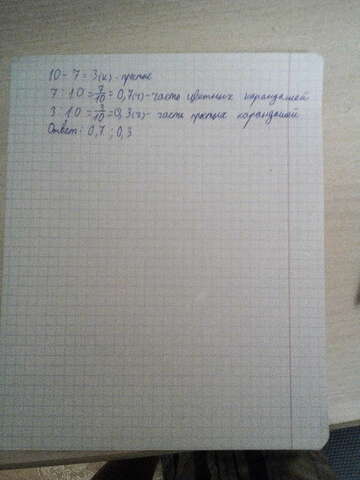 10 - 7 = 3 (к) - простые
7 : 10 = 7/10 = 0,7 (ч) - часть цветных карандашей
3 : 10 = 3/10 = 0,3 (ч) - часть простых карандашей
Ответ: 0,7 ; 0,3